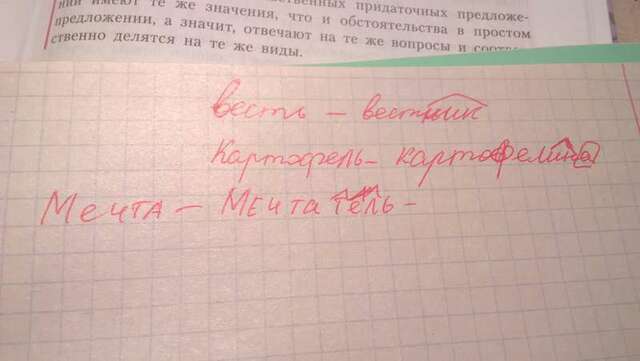 ственных придаточных предложе-
нии имеют те же значения, что и обстоятельства в простом
предложении, а значит, отвечают на те же вопросы и соответ
ственно делятся на те же виды.
весть – вестник
Картофель – картофелина
Мечта – Мечтатель –